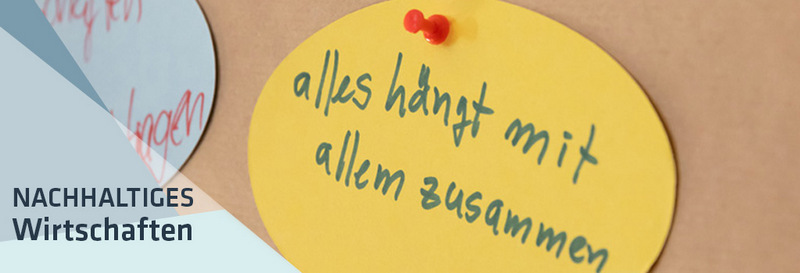 alles hängt mit
allem zusammen
NACHHALTIGES
Wirtschaften